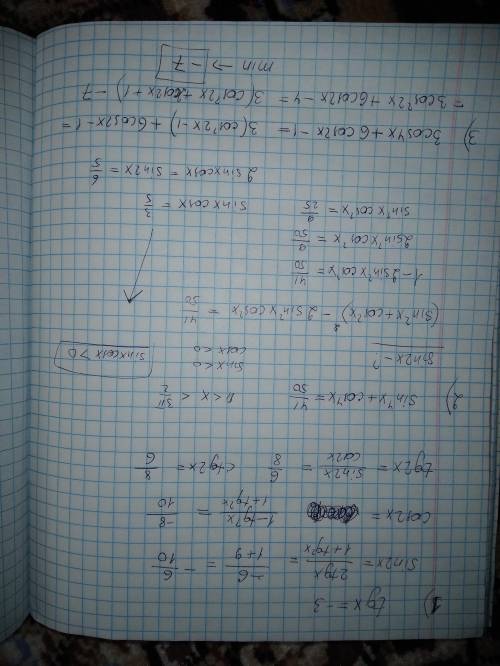 1) tg x = -3
sin2x = 2tgx / 1+tg²x = -6 / 1+9 = - 6/10
cos2x = 1-tg²x / 1+tg²x = -8/10
tg2x = sin2x / cos2x = 6/8 ctg2x = 8/6
2) sin⁴x + cos⁴x = 41/50 π < x < 3π/2
sin2x - ? sinx < 0 cosx < 0 sinxcosx > 0
(sin²x + cos²x)² - 2sin²x cos²x = 41/50
1 - 2sin²x cos²x = 41/50
2sin²x cos²x = 9/50
sin²x cos²x = 9/25 sinx cosx = 3/5
2sinxcosx = sin2x = 6/5
3) 3cos4x + 6cos2x - 1 = 3(cos²2x - 1) + 6cos2x - 1 =
= 3cos²2x + 6cos2x - 4 = 3(cos²2x + 2cos2x + 1) - 7
min → -7